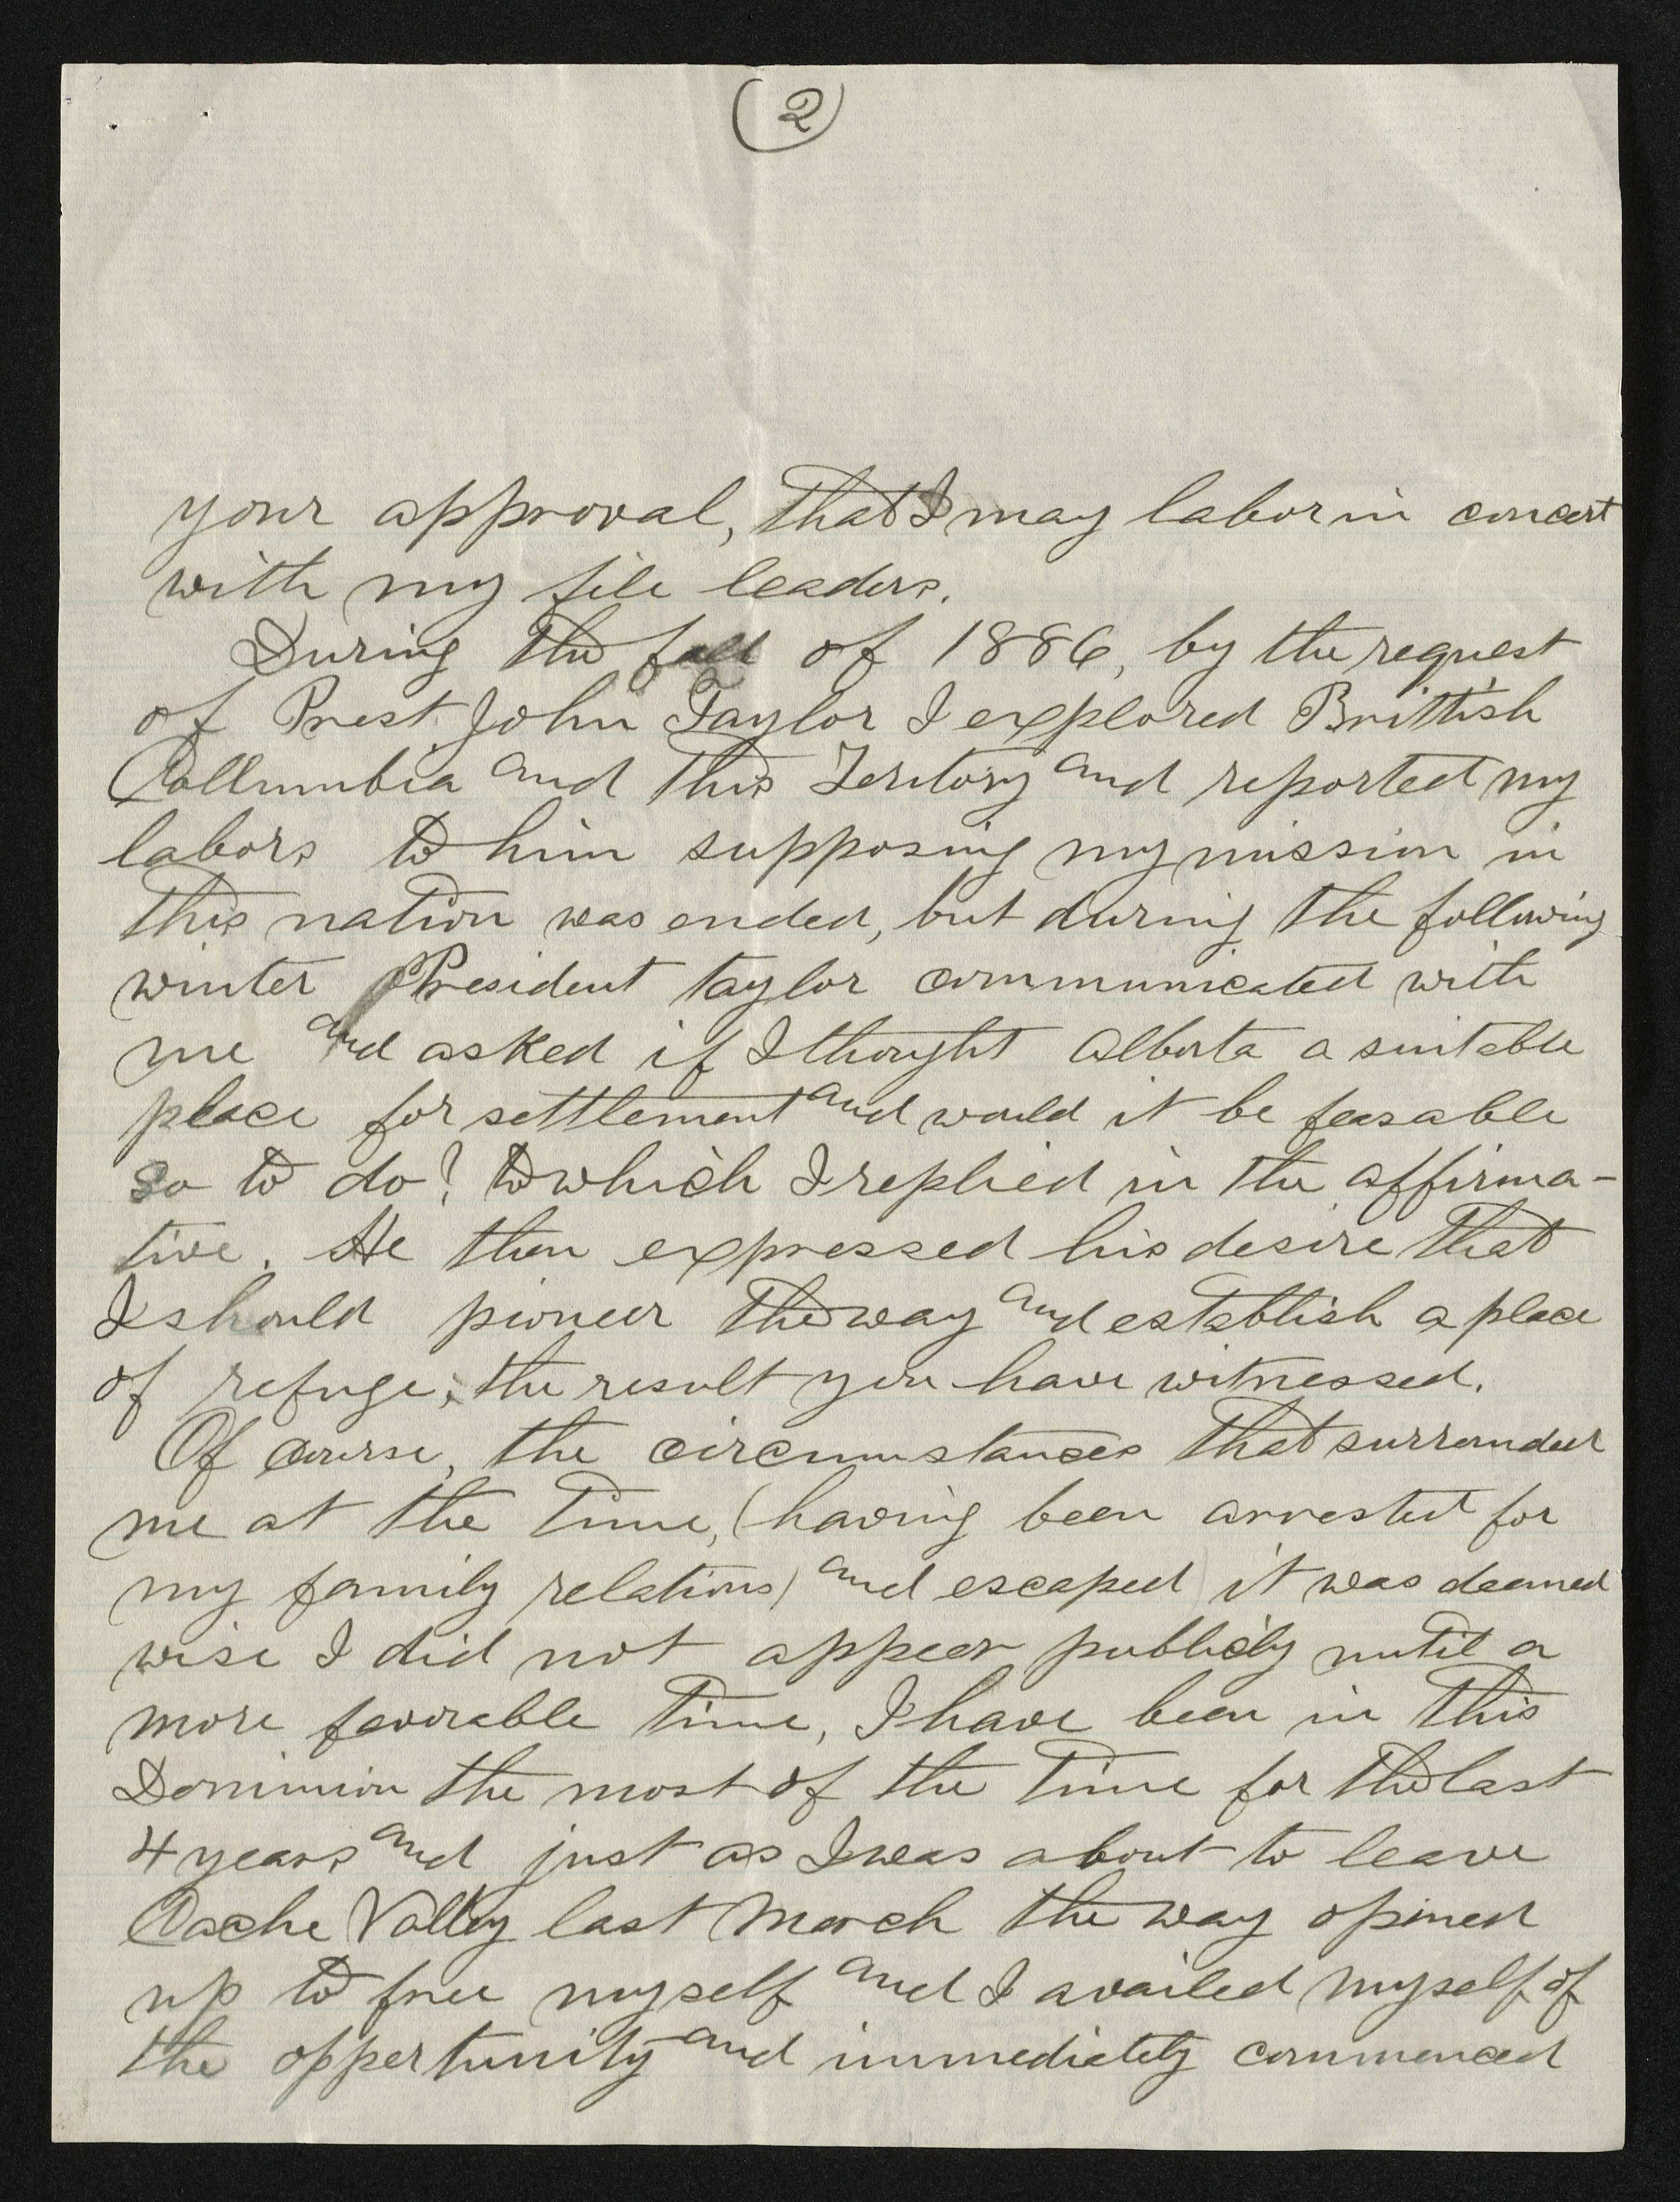 (2)
your approval, that I may labor in concert
with my file leaders.
During the fall of 1886, by the request
of Prest John Taylor I explored Brittish
Collumbia and this Teritory and reported my
labors to him supposing my mission in
this nation was ended, but during the following
winter President taylor communicated with
me and asked if I thought Alberta a suitable
place for settlement and would it be feasable
so to do? to which I replied in the affirma-
tive. He then expressed his desire that
I should pioneer the way and establish a place
of refuge; the result you have witnessed.
Of course, the circumstances that surrounded
me at the time, (having been arrested for
my family relations) and escaped it was deemed
wise I did not appear publicly until a
more favorable time, I have been in this
Dominion the most of the time for the last
4 years and just as I was about to leave
Cache Valley last March the way opined
up to free myself and I availed myself of
the oppertunity and immediately commenced